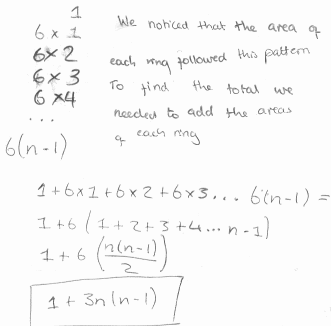 1
6 × 1
6 × 2
6 × 3
6 × 4
...
6(n-1)
We noticed that the area of
each ring followed this pattern
To find the total we
needed to add the areas
of each ring
1+6×1+6×2+6×3... 6(n-1) =
1+6 (1+2+3+4... n-1)
1+6 (n(n-1)/2)
1+3n(n-1)